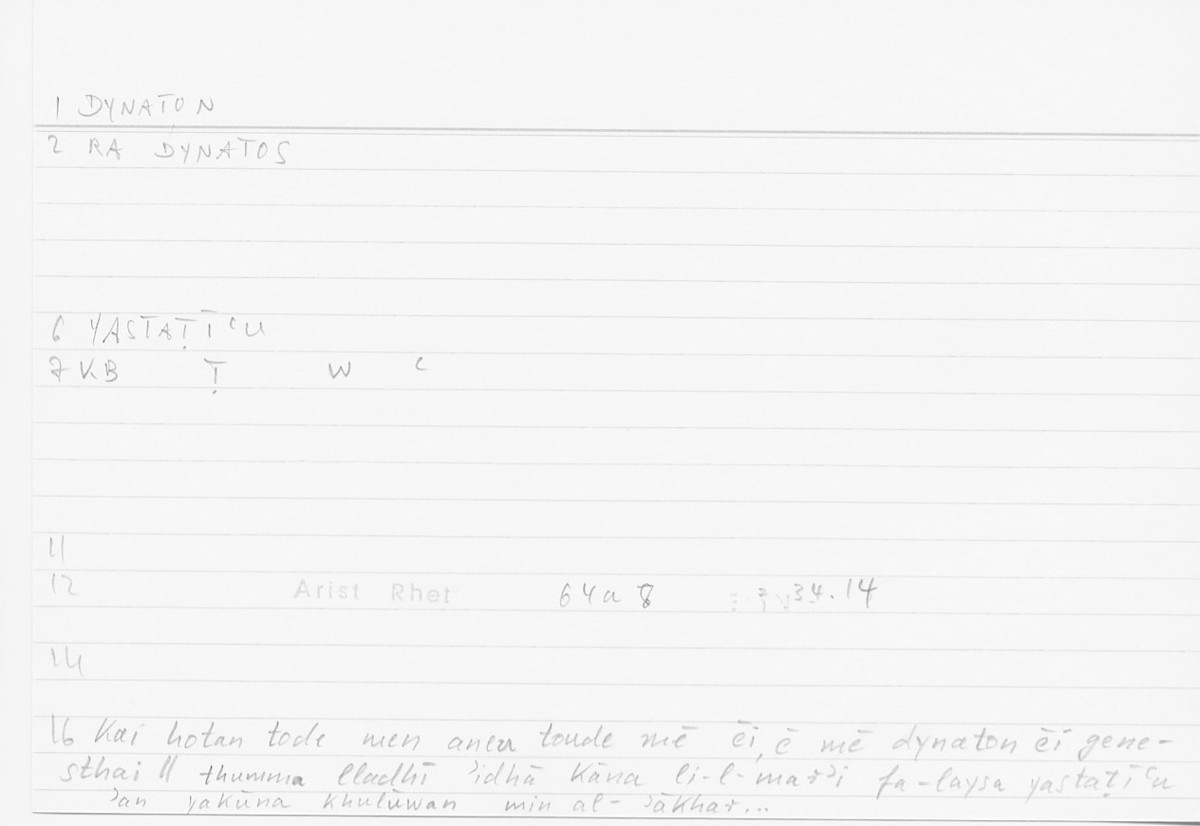 1 DYNATON
2 RA DYNATOS
6 YASTAṬĪʿU
7 KB Ṭ W ʿ
11
12 Arist Rhet 64a 8 34.14
14
16 Kai hotan tode men aneu toude mē ēi, ē mē dynaton ēi gene-
sthai || thumma lladhī ʾidhā kāna li-l-marʾi fa-laysa yastaṭīʿu
ʾan yakūna khulūwan min al-ʾākhar...